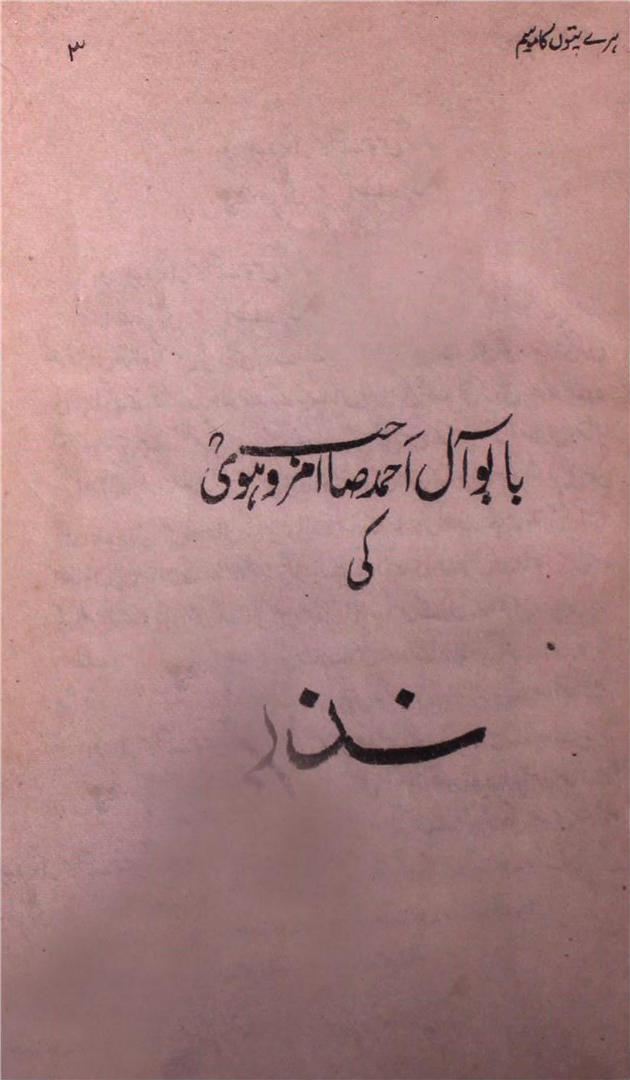 ہرے پتوں کا موسم
۳
بابو آل احمد صاحب امروہوی
کی
نذر